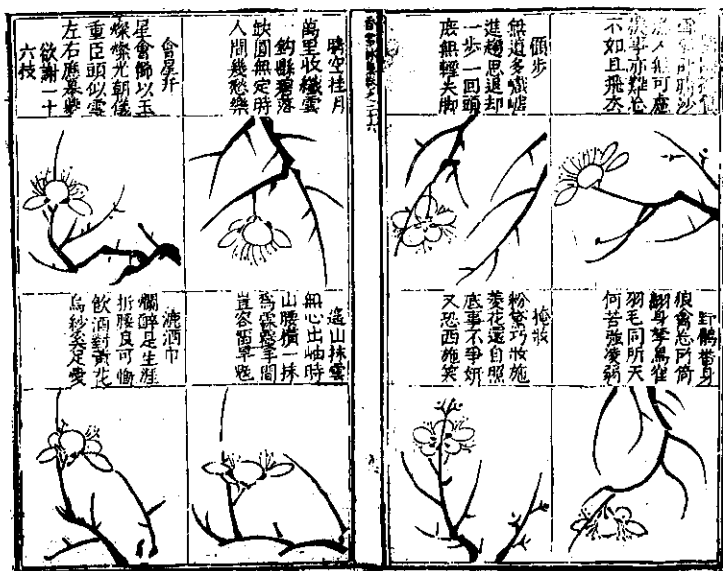 不如且飛去
顧步
無道多嶮巇
進趨思退却
一步一回頭
底無輕失脚
野鶻翻身
翻身擊烏雀
羽毛同所天
何苦強凌弱
掩妝
粉黛巧妝施
菱花還自照
底事不爭妍
又恐西施笑
晴空挂月
萬里收纖雲
鈎縣碧落
缺圓無定時
人間幾愁樂
會星弁
星會飾以玉
燦燦光朝儀
重臣頭似雪
左右應皋夔
欲謝一十
六枝
遙山抹雲
無心出岫時
山腰橫一抹
為霖間
豈容留旱魃
漉酒巾
爛醉是生涯
折腰良可慚
飲酒對黃花
烏紗奚足愛